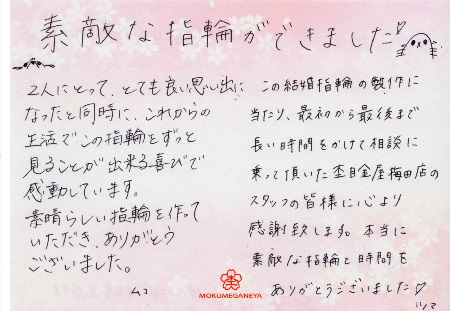 素敵な指輪ができました♡
2人にとって、とても良い思い出に
なったと同時に、これからの
生活でこの指輪をずっと
見ることが出来る喜びで
感動しています。
素晴らしい指輪を作って
いただき、ありがとう
ございました。
ムコ
この結婚指輪の製作に
当たり、最初から最後まで
長い時間をかけて相談に
乗って頂いた杢目金屋梅田店の
スタッフの皆様に心より
感謝致します。本当に
素敵な指輪と時間を
ありがとうございました♡
ツマ
MOKUMEGANEYA